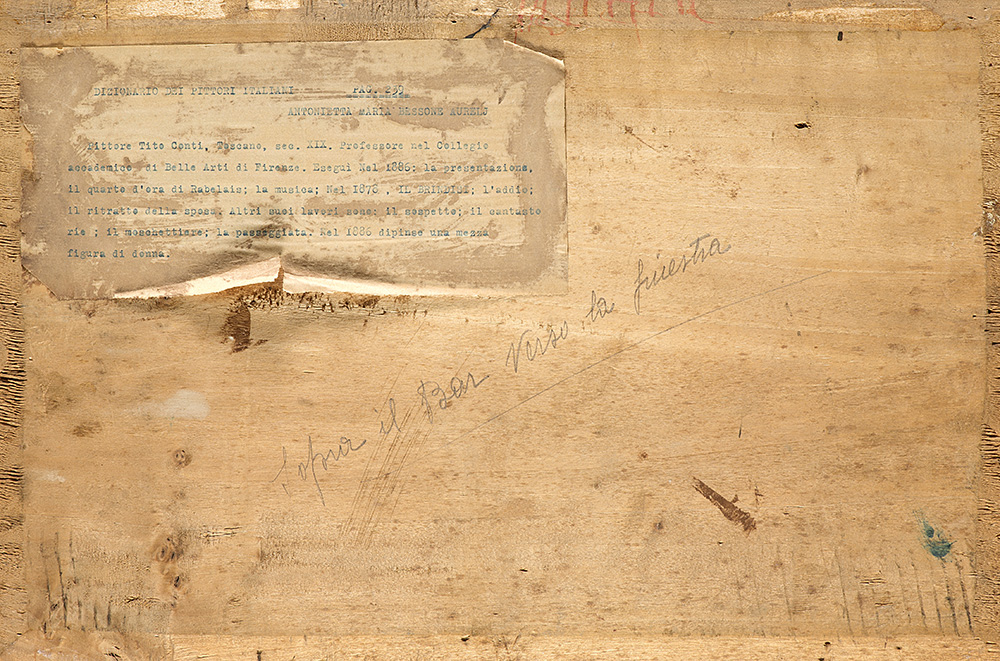 DIZIONARIO DEI PITTORI ITALIANI PAG. 239
ANTONIETTA MARIA BESSONE AURELJ
Pittore Tito Conti, Toscano, sec. XIX. Professore nel Collegio
accademico di Belle Arti di Firenze. Eseguì Nel 1886: la presentazione,
il quarto d'ora di Rabelais; la musica; Nel 1878 , IL BRINDISI; l'addio;
il ritratto della sposa. Altri suoi lavori sono: il sospetto; il cantasto
rie ; il moschettiere; la passeggiata. Nel 1886 dipinse una mezza
figura di donna.
Sopra il Bar verso la finestra